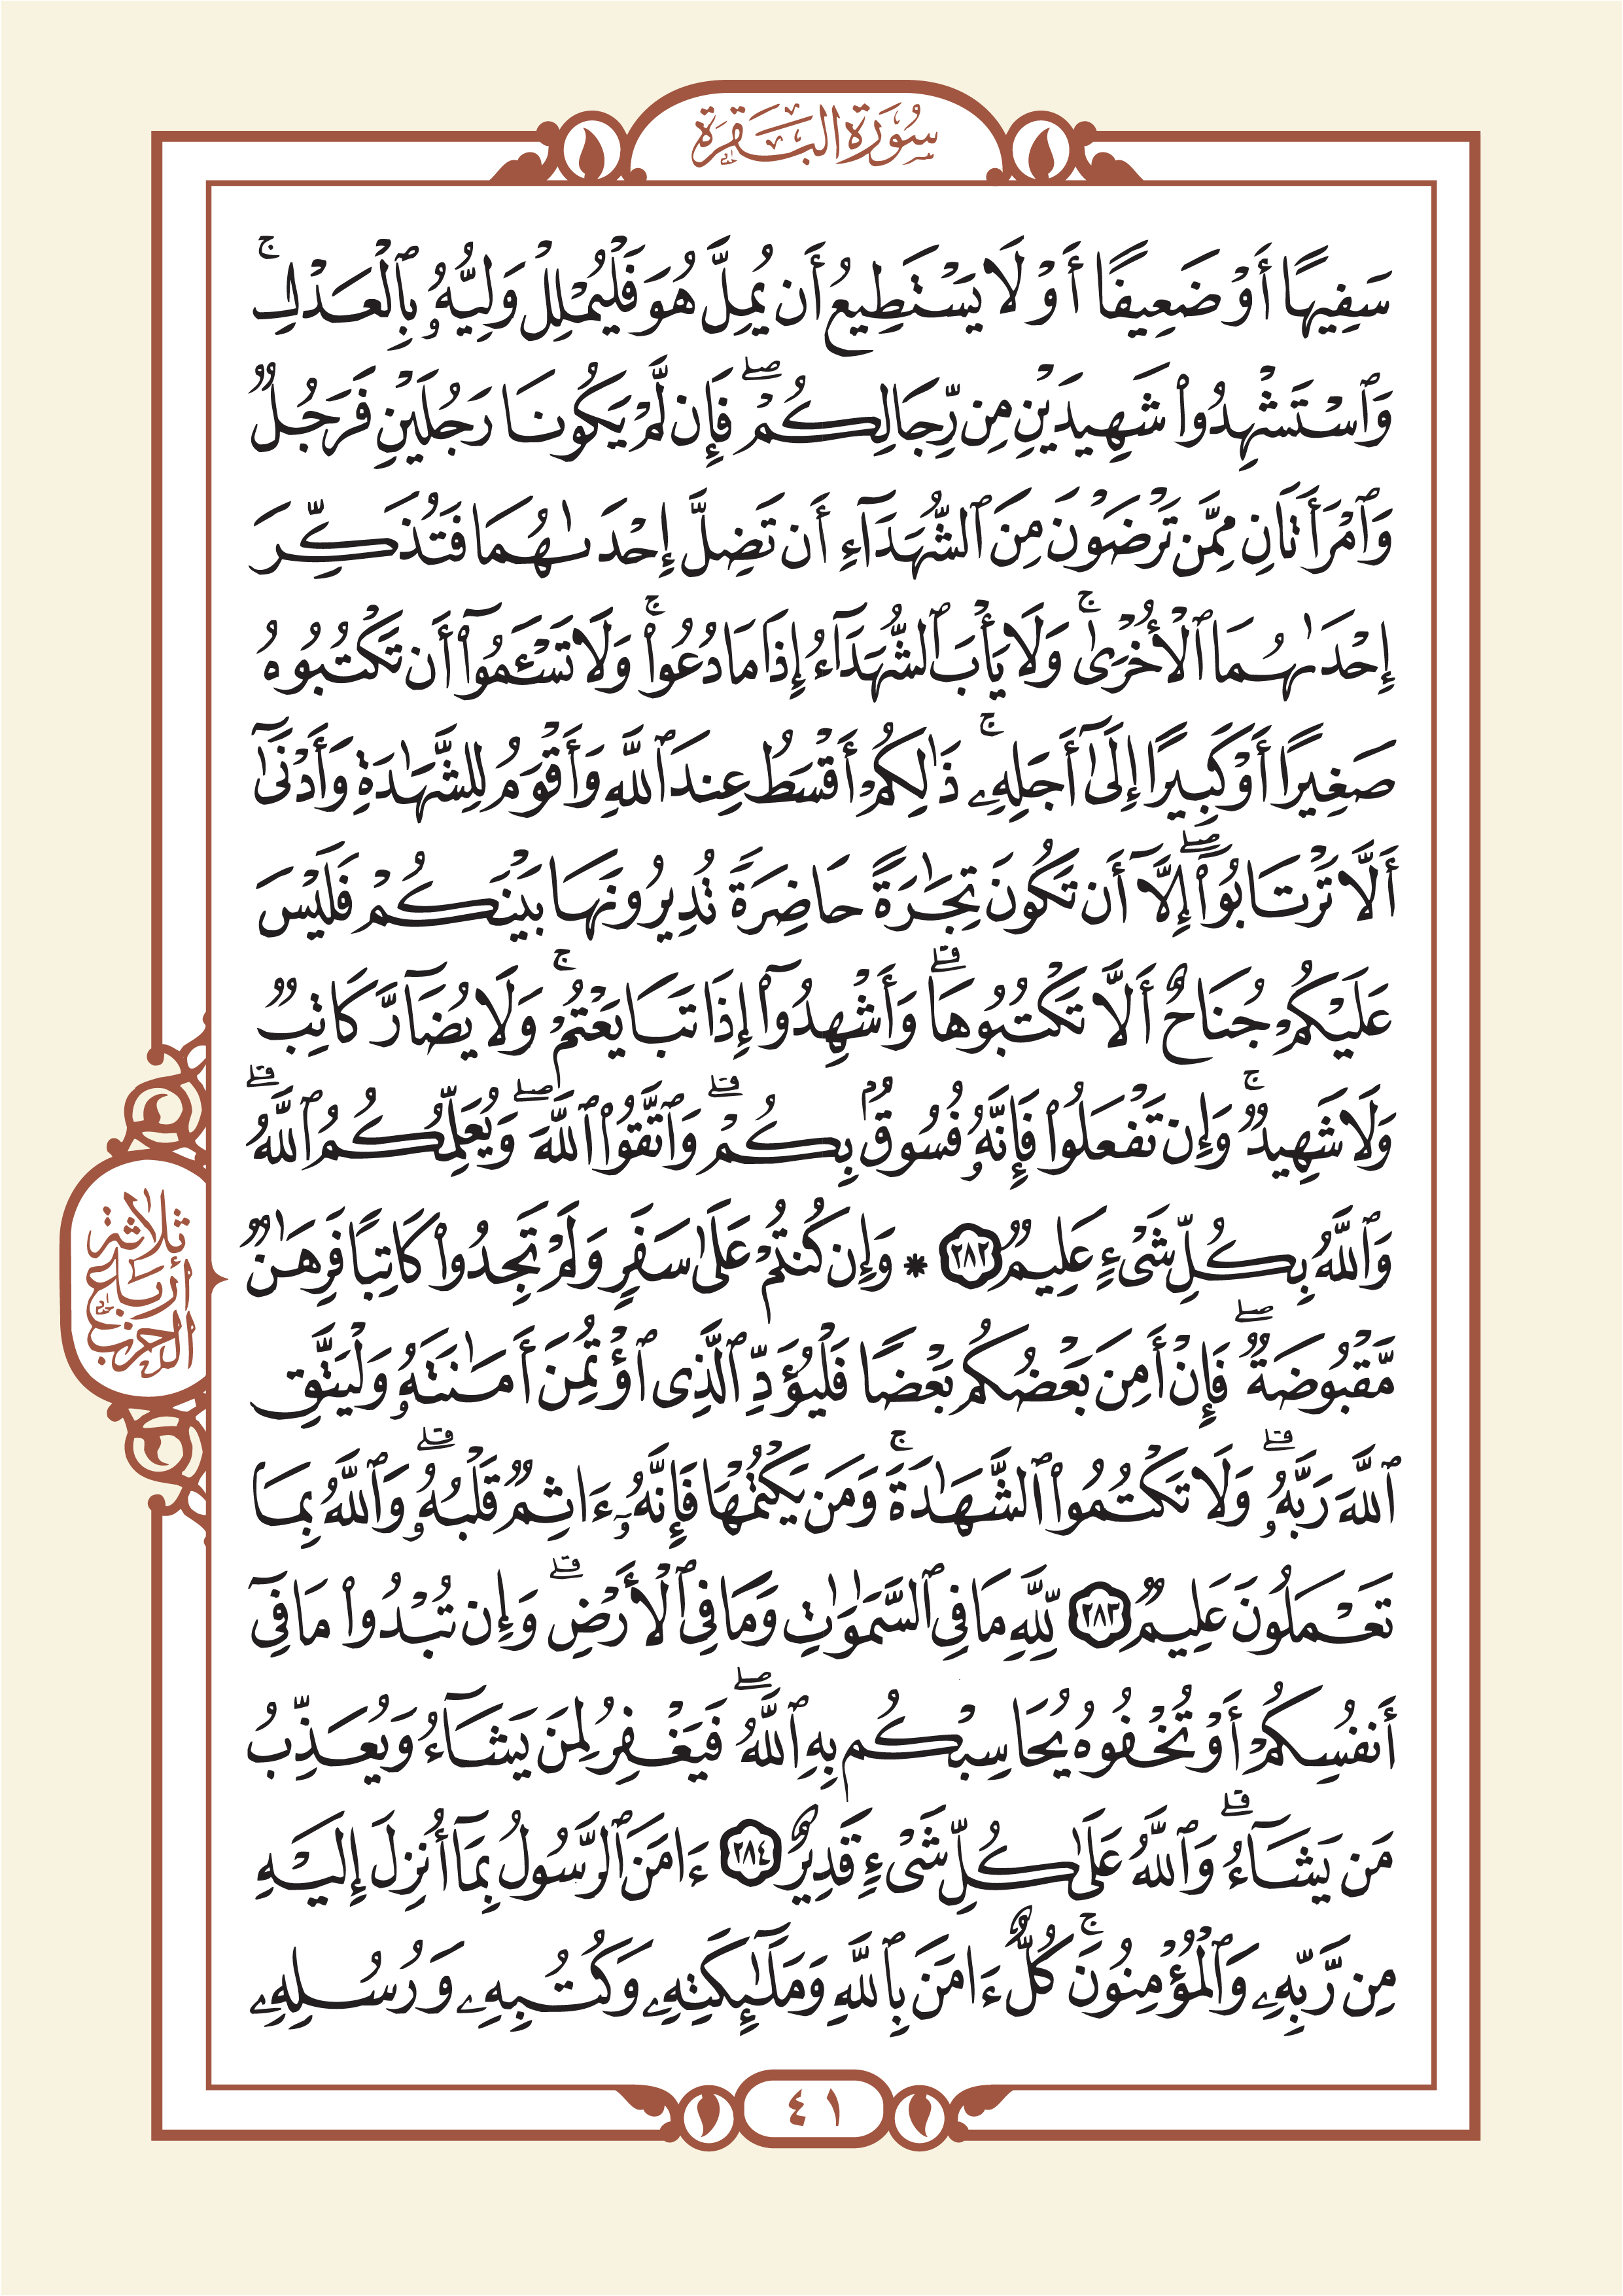 سُورَةُ البَقَرَة
سَفِيهًا أَوْ ضَعِيفًا أَوْ لَا يَسْتَطِيعُ أَن يُمِلَّ هُوَ فَلْيُمْلِلْ وَلِيُّهُۥ بِٱلْعَدْلِ ۚ
وَٱسْتَشْهِدُوا۟ شَهِيدَيْنِ مِن رِّجَالِكُمْ ۖ فَإِن لَّمْ يَكُونَا رَجُلَيْنِ فَرَجُلٌ
وَٱمْرَأَتَانِ مِمَّن تَرْضَوْنَ مِنَ ٱلشُّهَدَآءِ أَن تَضِلَّ إِحْدَىٰهُمَا فَتُذَكِّرَ
إِحْدَىٰهُمَا ٱلْأُخْرَىٰ ۚ وَلَا يَأْبَ ٱلشُّهَدَآءُ إِذَا مَا دُعُوا۟ ۚ وَلَا تَسْـَٔمُوٓا۟ أَن تَكْتُبُوهُ
صَغِيرًا أَوْ كَبِيرًا إِلَىٰٓ أَجَلِهِۦ ۚ ذَٰلِكُمْ أَقْسَطُ عِندَ ٱللَّهِ وَأَقْوَمُ لِلشَّهَـٰدَةِ وَأَدْنَىٰٓ
أَلَّا تَرْتَابُوٓا۟ ۖ إِلَّآ أَن تَكُونَ تِجَـٰرَةً حَاضِرَةً تُدِيرُونَهَا بَيْنَكُمْ فَلَيْسَ
عَلَيْكُمْ جُنَاحٌ أَلَّا تَكْتُبُوهَا ۗ وَأَشْهِدُوٓا۟ إِذَا تَبَايَعْتُمْ ۚ وَلَا يُضَآرَّ كَاتِبٌ
وَلَا شَهِيدٌ ۚ وَإِن تَفْعَلُوا۟ فَإِنَّهُۥ فُسُوقٌۢ بِكُمْ ۗ وَٱتَّقُوا۟ ٱللَّهَ ۖ وَيُعَلِّمُكُمُ ٱللَّهُ ۗ
وَٱللَّهُ بِكُلِّ شَىْءٍ عَلِيمٌ ٢٨٢ * وَإِن كُنتُمْ عَلَىٰ سَفَرٍ وَلَمْ تَجِدُوا۟ كَاتِبًا فَرِهَـٰنٌ
ثلاثة
أرباع
الحزب
مَّقْبُوضَةٌ ۖ فَإِنْ أَمِنَ بَعْضُكُم بَعْضًا فَلْيُؤَدِّ ٱلَّذِى ٱؤْتُمِنَ أَمَـٰنَتَهُۥ وَلْيَتَّقِ
ٱللَّهَ رَبَّهُۥ ۗ وَلَا تَكْتُمُوا۟ ٱلشَّهَـٰدَةَ ۚ وَمَن يَكْتُمْهَا فَإِنَّهُۥٓ ءَاثِمٌ قَلْبُهُۥ ۗ وَٱللَّهُ بِمَا
تَعْمَلُونَ عَلِيمٌ ٢٨٣ لِّلَّهِ مَا فِى ٱلسَّمَـٰوَٰتِ وَمَا فِى ٱلْأَرْضِ ۗ وَإِن تُبْدُوا۟ مَا فِىٓ
أَنفُسِكُمْ أَوْ تُخْفُوهُ يُحَاسِبْكُم بِهِ ٱللَّهُ ۖ فَيَغْفِرُ لِمَن يَشَآءُ وَيُعَذِّبُ
مَن يَشَآءُ ۗ وَٱللَّهُ عَلَىٰ كُلِّ شَىْءٍ قَدِيرٌ ٢٨٤ ءَامَنَ ٱلرَّسُولُ بِمَآ أُنزِلَ إِلَيْهِ
مِن رَّبِّهِۦ وَٱلْمُؤْمِنُونَ ۚ كُلٌّ ءَامَنَ بِٱللَّهِ وَمَلَـٰٓئِكَتِهِۦ وَكُتُبِهِۦ وَرُسُلِهِۦ
٤١